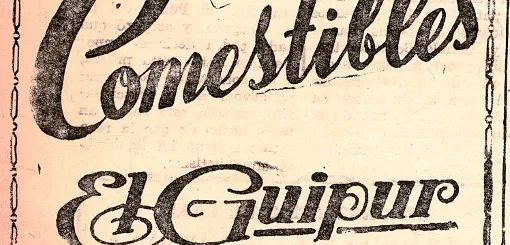 Comestibles
El Guipur